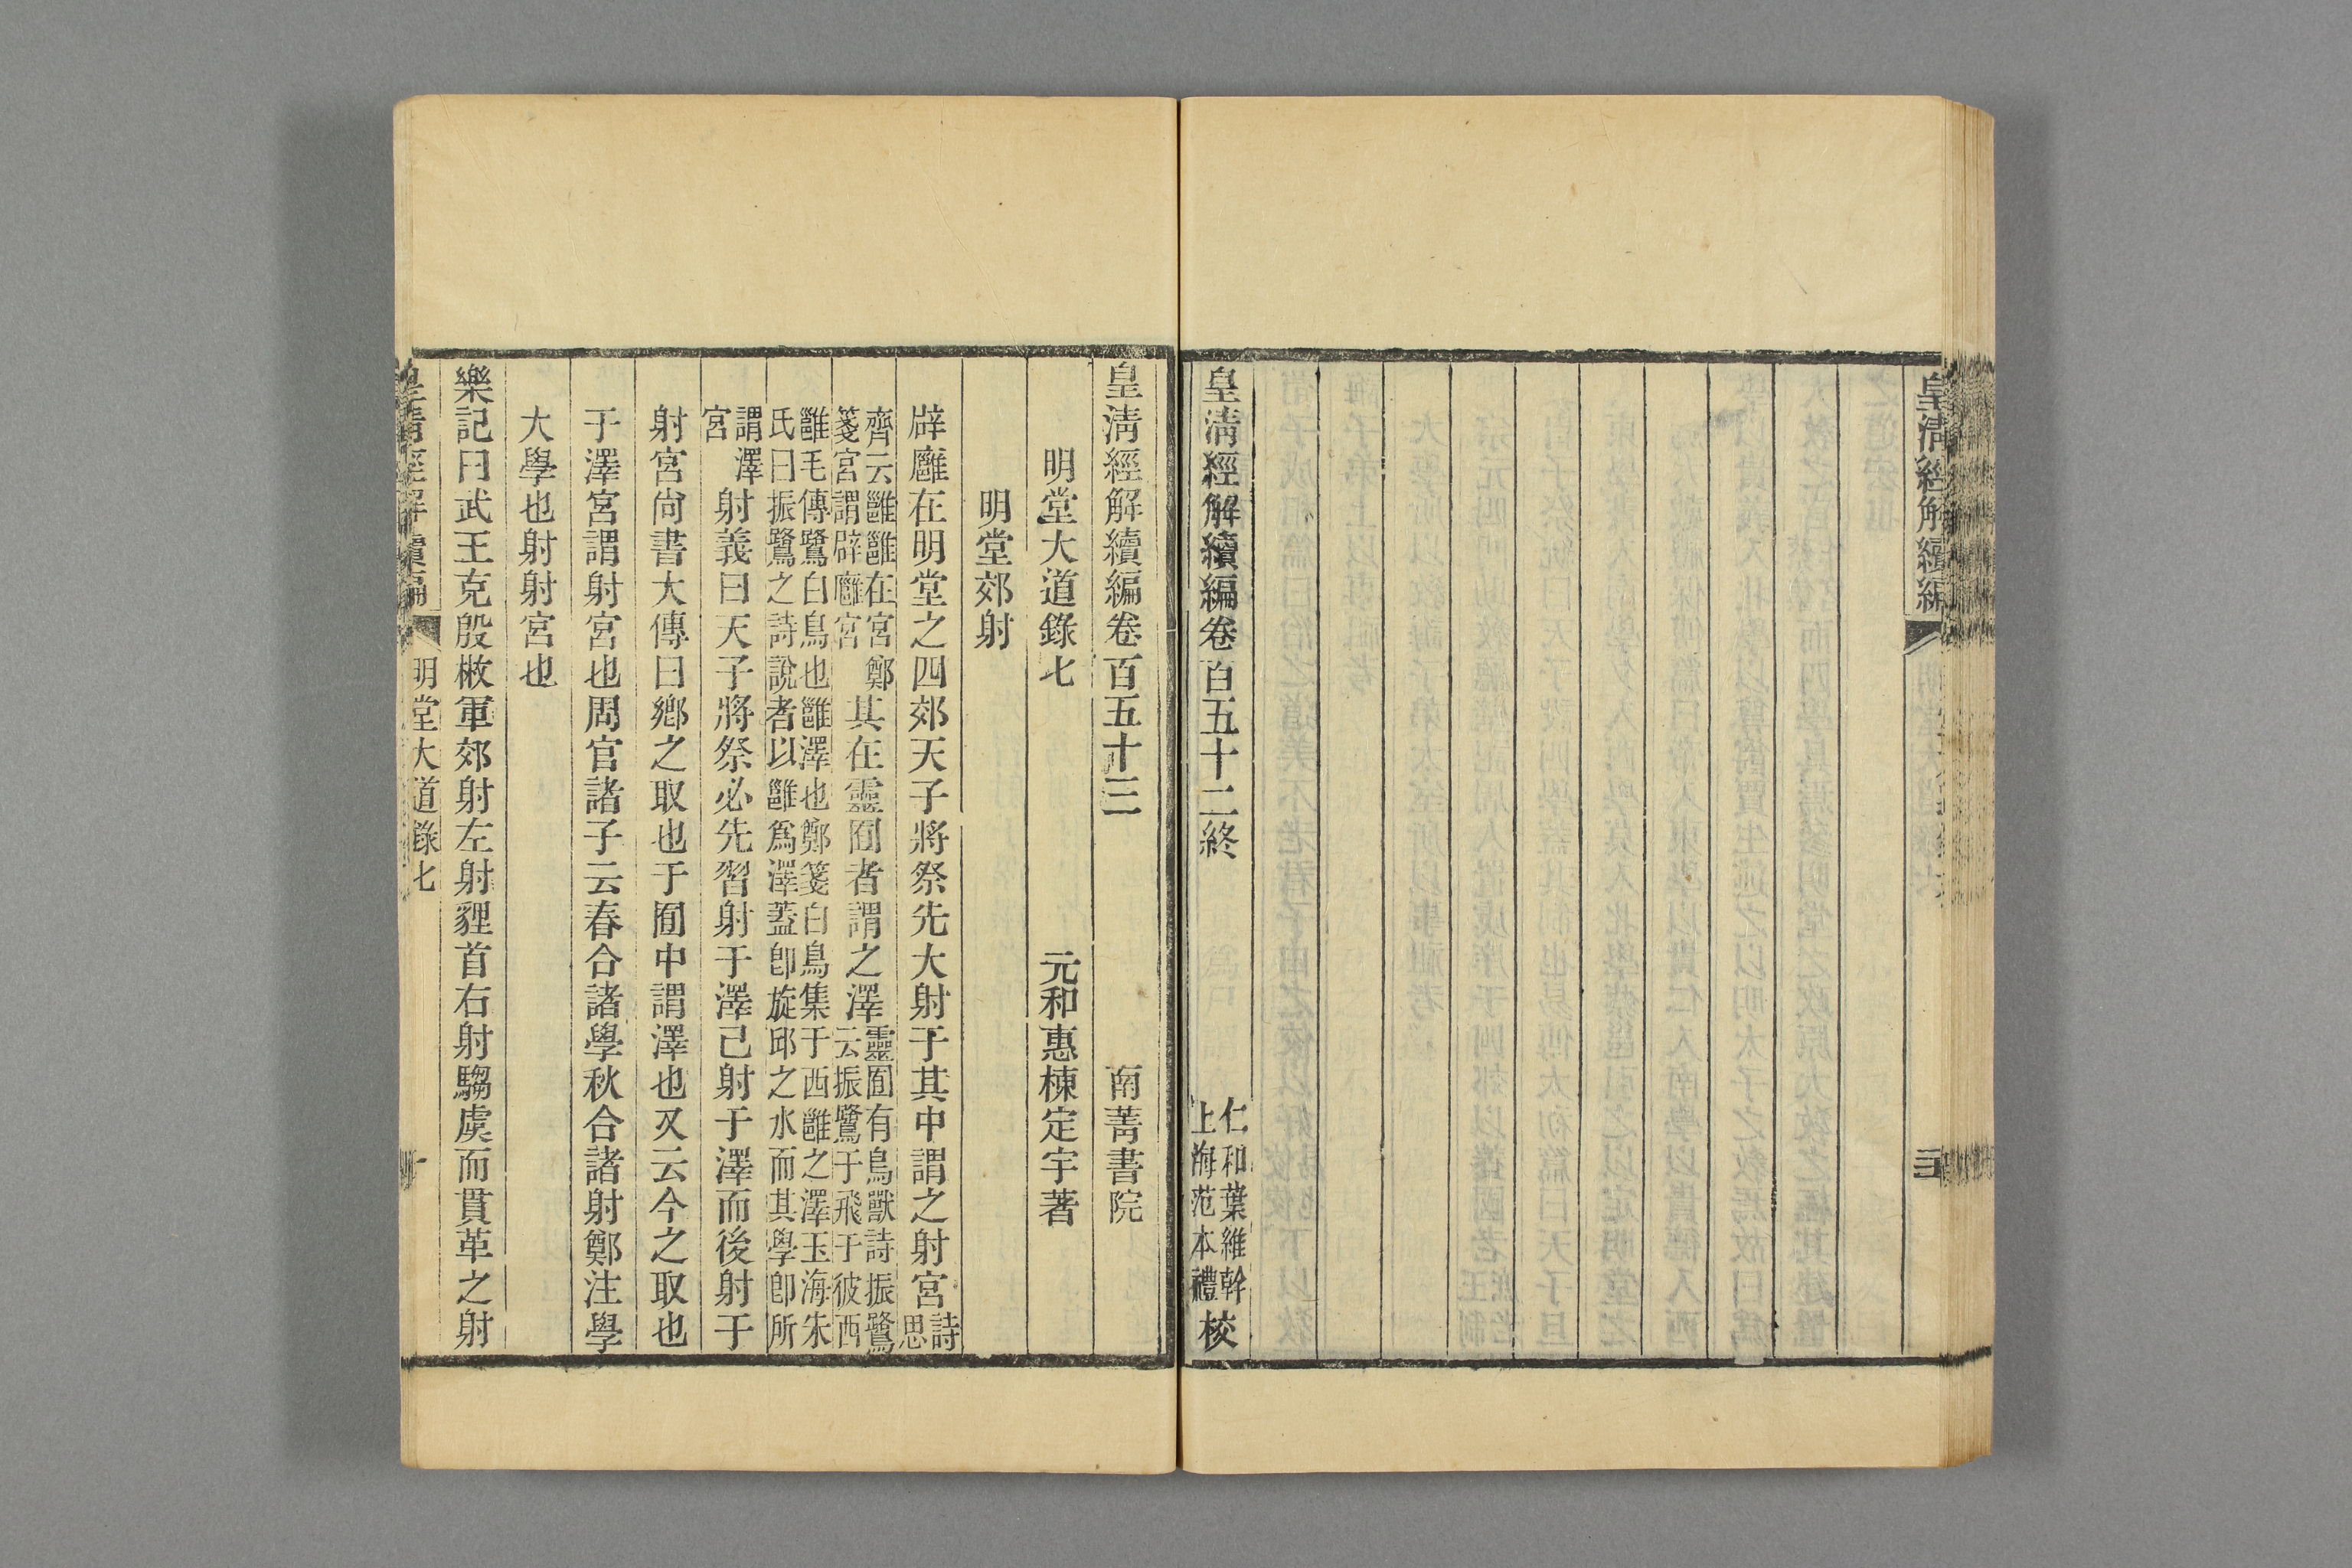 皇清經解續編
三
皇清經解續編卷百五十二終
仁和葉維幹
上海范本禮
校
皇清經解續編卷百五十三
南菁書院
明堂大道錄七
元和惠棟定宇著
明堂郊射
辟廱在明堂之四郊天子將祭先大射于其中謂之射宮詩思
齊云雝雝在宮鄭箋宮謂辟廱宮其在靈囿者謂之澤靈囿有鳥獸詩振鷺云振鷺于飛于彼西
雝毛傳鷺白鳥也雝澤也鄭箋白鳥集于西雝之澤玉海朱氏曰振鷺之詩說者以雝爲澤蓋卽旋邱之水而其學卽所
謂澤宮射義曰天子將祭必先習射于澤已射于澤而後射于
射宮尙書大傳曰鄉之取也于囿中謂澤也又云今之取也
于澤宮謂射宮也周官諸子云春合諸學秋合諸射鄭注學
大學也射射宮也
樂記曰武王克殷散軍郊射左射貍首右射騶虞而貫革之射
皇清經解續編
明堂大道錄七
一